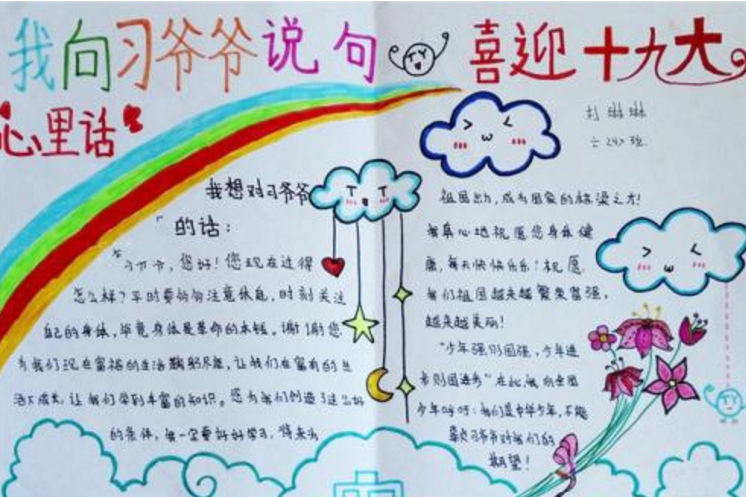 我向习爷爷说句
心里话
喜迎十九大
刘琳琳
六2 班
我想对习爷爷
的话：
"习爷爷，您好！您现在过得
怎么样？平时要多多注意休息，时刻关注
自己的身体，毕竟身体是革命的本钱。谢谢您
为我们现在富裕的生活鞠躬尽瘁，让我们在富有的生
活下成长，让我们学到丰富的知识。您为我们创造了这么好
的条件，我一定要好好学习，将来为
祖国出力，成为国家的栋梁之才！
我真心地祝愿您身体健
康，每天快快乐乐！祝愿
我们祖国越来越繁荣富强，
越来越美丽！
"少年强则国强，少年进
步则国进步"在此，我向全国
少年呼吁：我们是中华少年，不能
辜负习爷爷对我们的
期望！